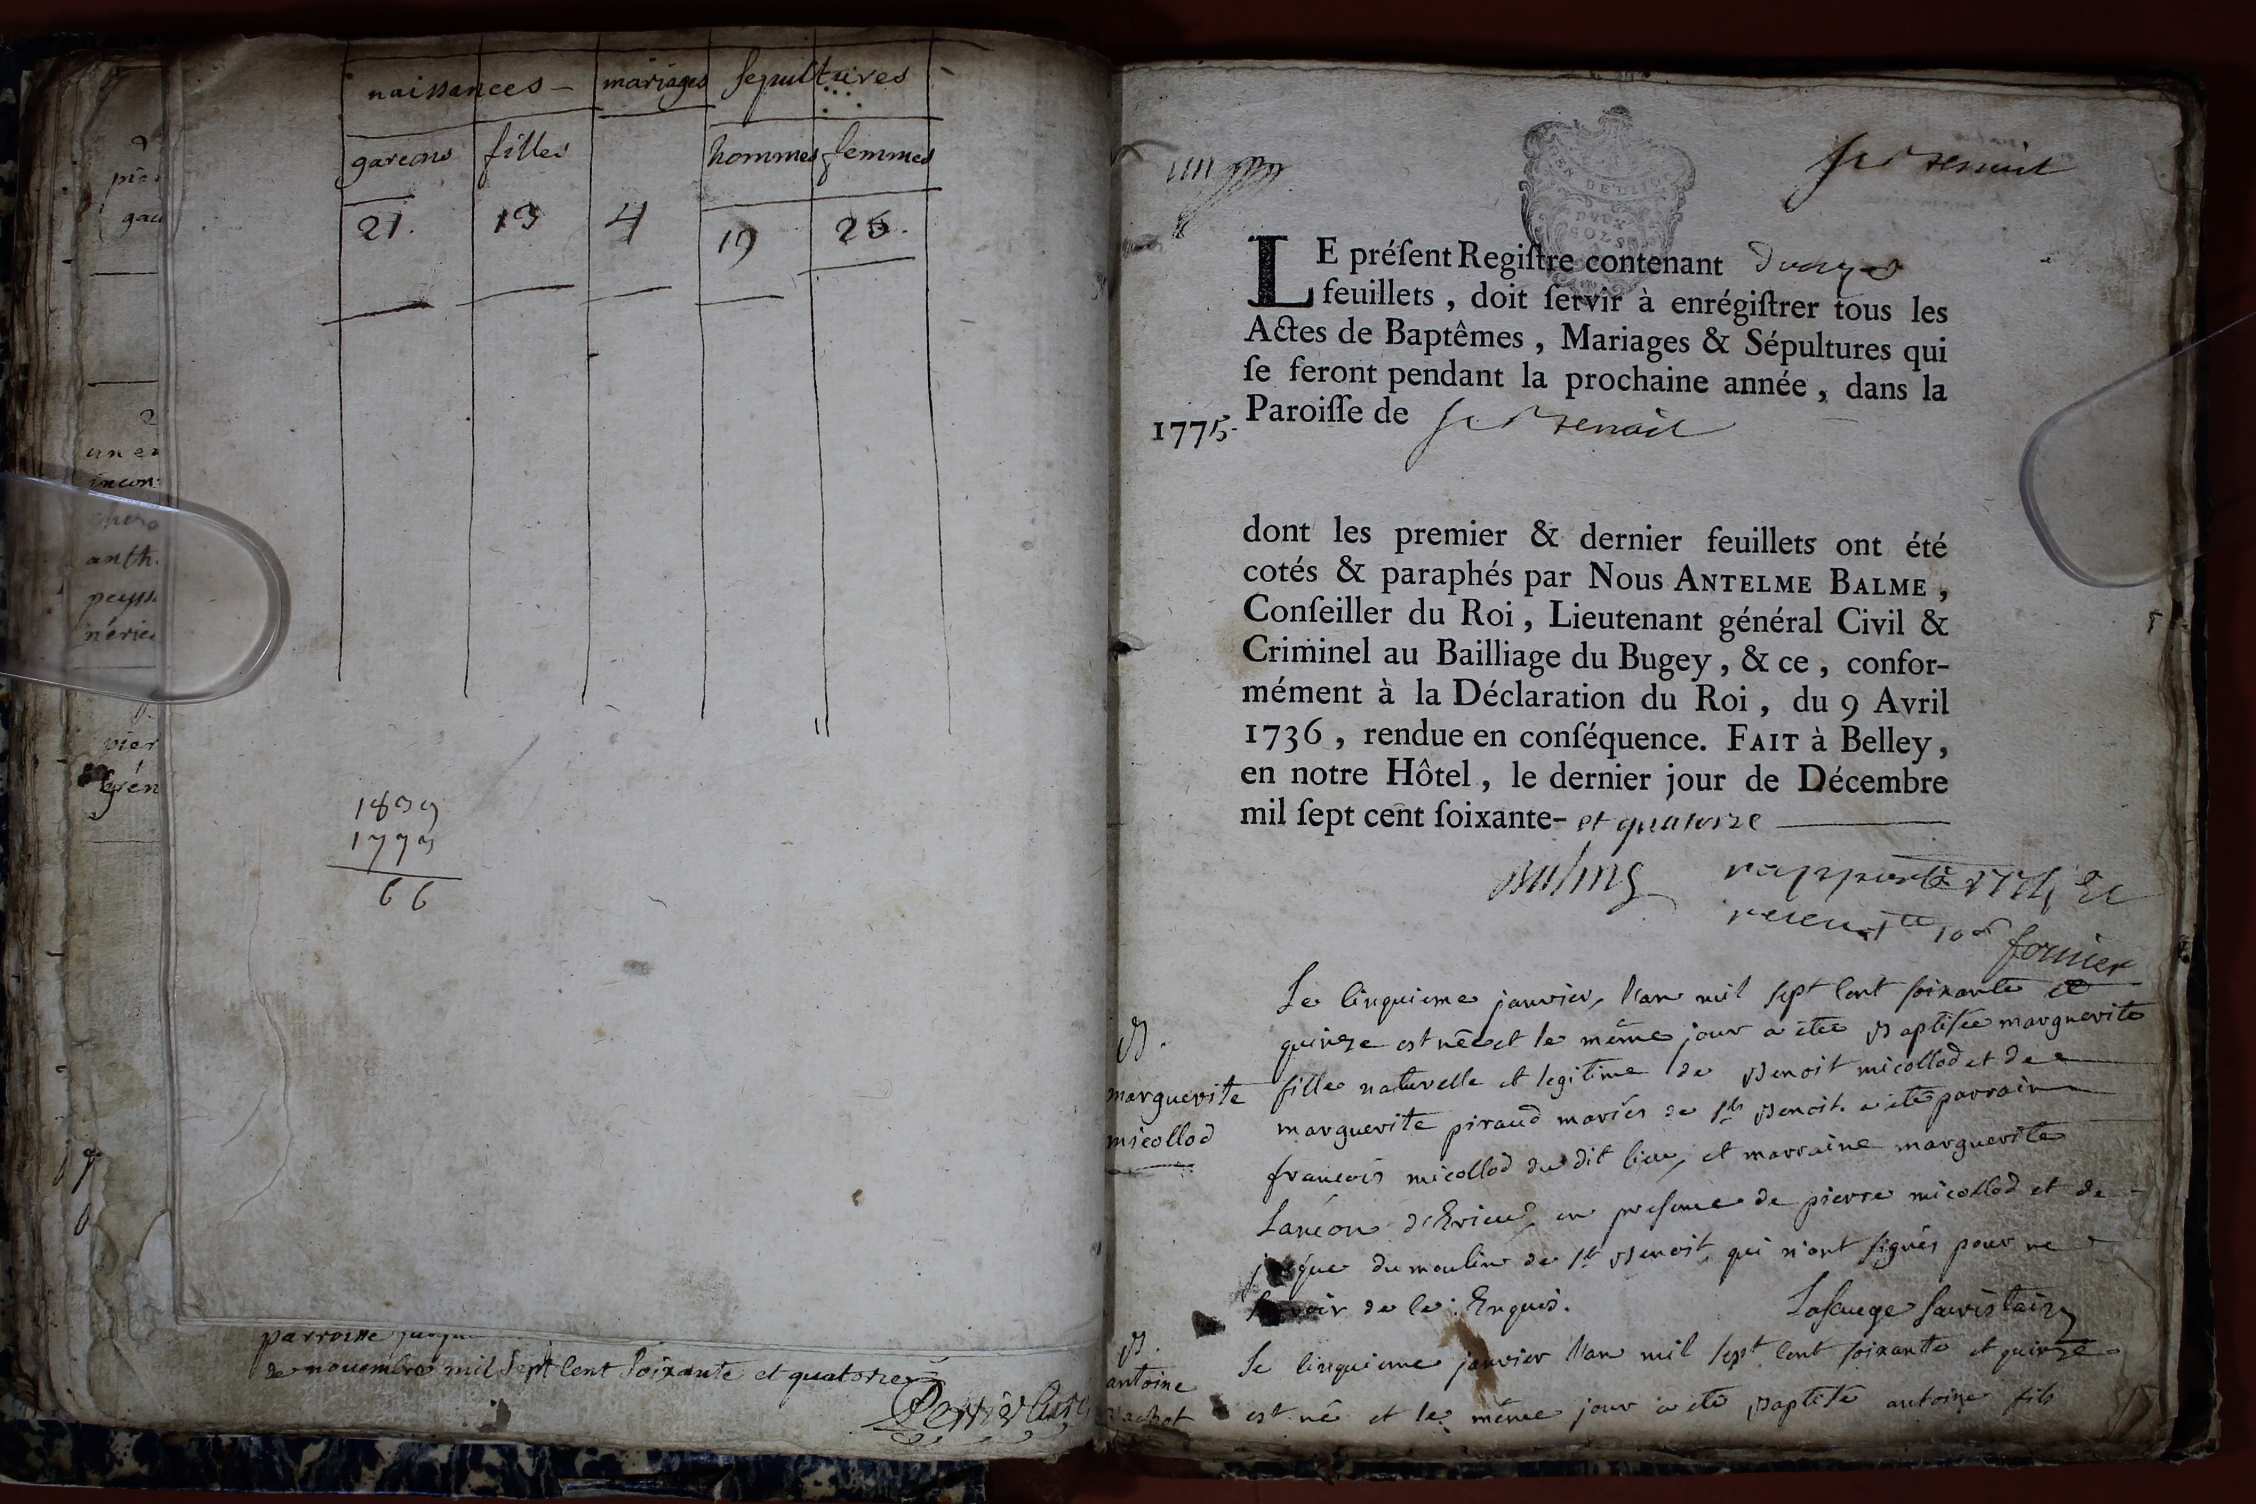 naissances – mariages sepultures
garcons filles hommes femmes
21. 13 4 19 26.
1839
1773
66
parroisse
de novembre mil sept cent soixante et quatorze
pier
gau
un en
incon
anth.
peyss
pier
St Benoit
LE préſent Regiſtre contenant douze
feuillets, doit ſervir à enrégiſtrer tous les
Actes de Baptêmes, Mariages & Sépultures qui
ſe feront pendant la prochaine année, dans la
1775. Paroiſſe de St Benoit
dont les premier & dernier feuillets ont été
cotés & paraphés par Nous ANTELME BALME,
Conſeiller du Roi, Lieutenant général Civil &
Criminel au Bailliage du Bugey, & ce, confor-
mément à la Déclaration du Roi, du 9 Avril
1736, rendue en conſéquence. FAIT à Belley,
en notre Hôtel, le dernier jour de Décembre
mil ſept cent ſoixante- et quatorze
Balme
B.
marguerite
micollod
Le cinquieme janvier, l'an mil sept cent soixante et
quinze est née et le même jour a été Baptisée marguerite
fille naturelle et legitime de Benoit micollod et de
marguerite piraud mariés de St Benoit. a été parrain
francois micollod du dit lieu, et marraine marguerite
Lancon d'Erieu, en presence de pierre micollod et de
du moulin de St Benoit, qui n'ont signés pour ne
de ce Enquis.
B.
antoine
Le cinquieme janvier l'an mil sept cent soixante et quinze
est né et le même jour a été Baptisé antoine fils